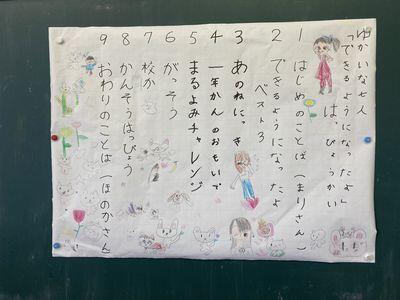 ゆかいな七人
「できるようになったよ」
はっぴょうかい
1 はじめのことば(まりさん)
2 できるようになったよ
ベスト3
3 あのねにっき
4 一年かんのおもいで
5 まるよみチャレンジ
6 がっそう
7 校か
8 かんそうはっぴょう
9 おわりのことば(ほのかさん)